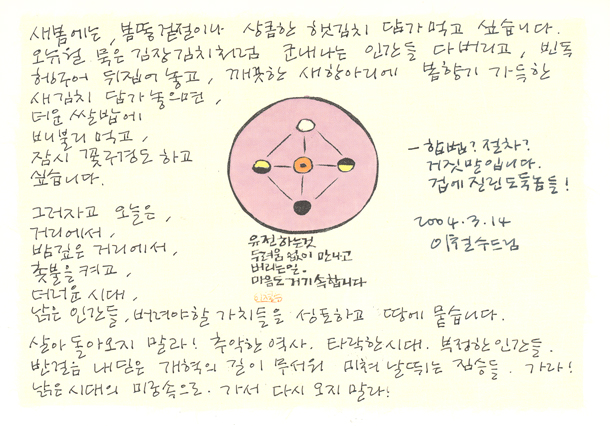 새봄에는, 봄똥겉절이나 상큼한 햇김치 담가먹고 싶습니다.
오뉴월 묵은 김장김치처럼 군내나는 인간들 다 버리고, 빈독
헹구어 뒤집어 놓고, 깨끗한 새항아리에 봄향기 가득한
새김치 담가 놓으면,
더운 쌀밥에
배불리 먹고,
잠시 꽃구경도 하고
싶습니다.
그러자고 오늘은,
거리에서,
밤깊은 거리에서,
촛불을 켜고,
더러운 시대,
낡은 인간들, 버려야할 가치들을 성토하고 땅에 묻습니다.
살아 돌아오지 말라! 추악한 역사. 타락한 시대. 부정한 인간들.
반걸음 내딛은 개혁의 길이 무서워 미쳐 날뛰는 짐승들. 가라!
낡은 시대의 미궁속으로. 가서 다시 오지 말라!
유전하는것
두려움 없이 만나고
버리는일.
마음도 거기 속합니다
- 합법? 절차?
거짓말입니다.
겁에 질린 도둑놈들!
2004.3.14
이철수드림